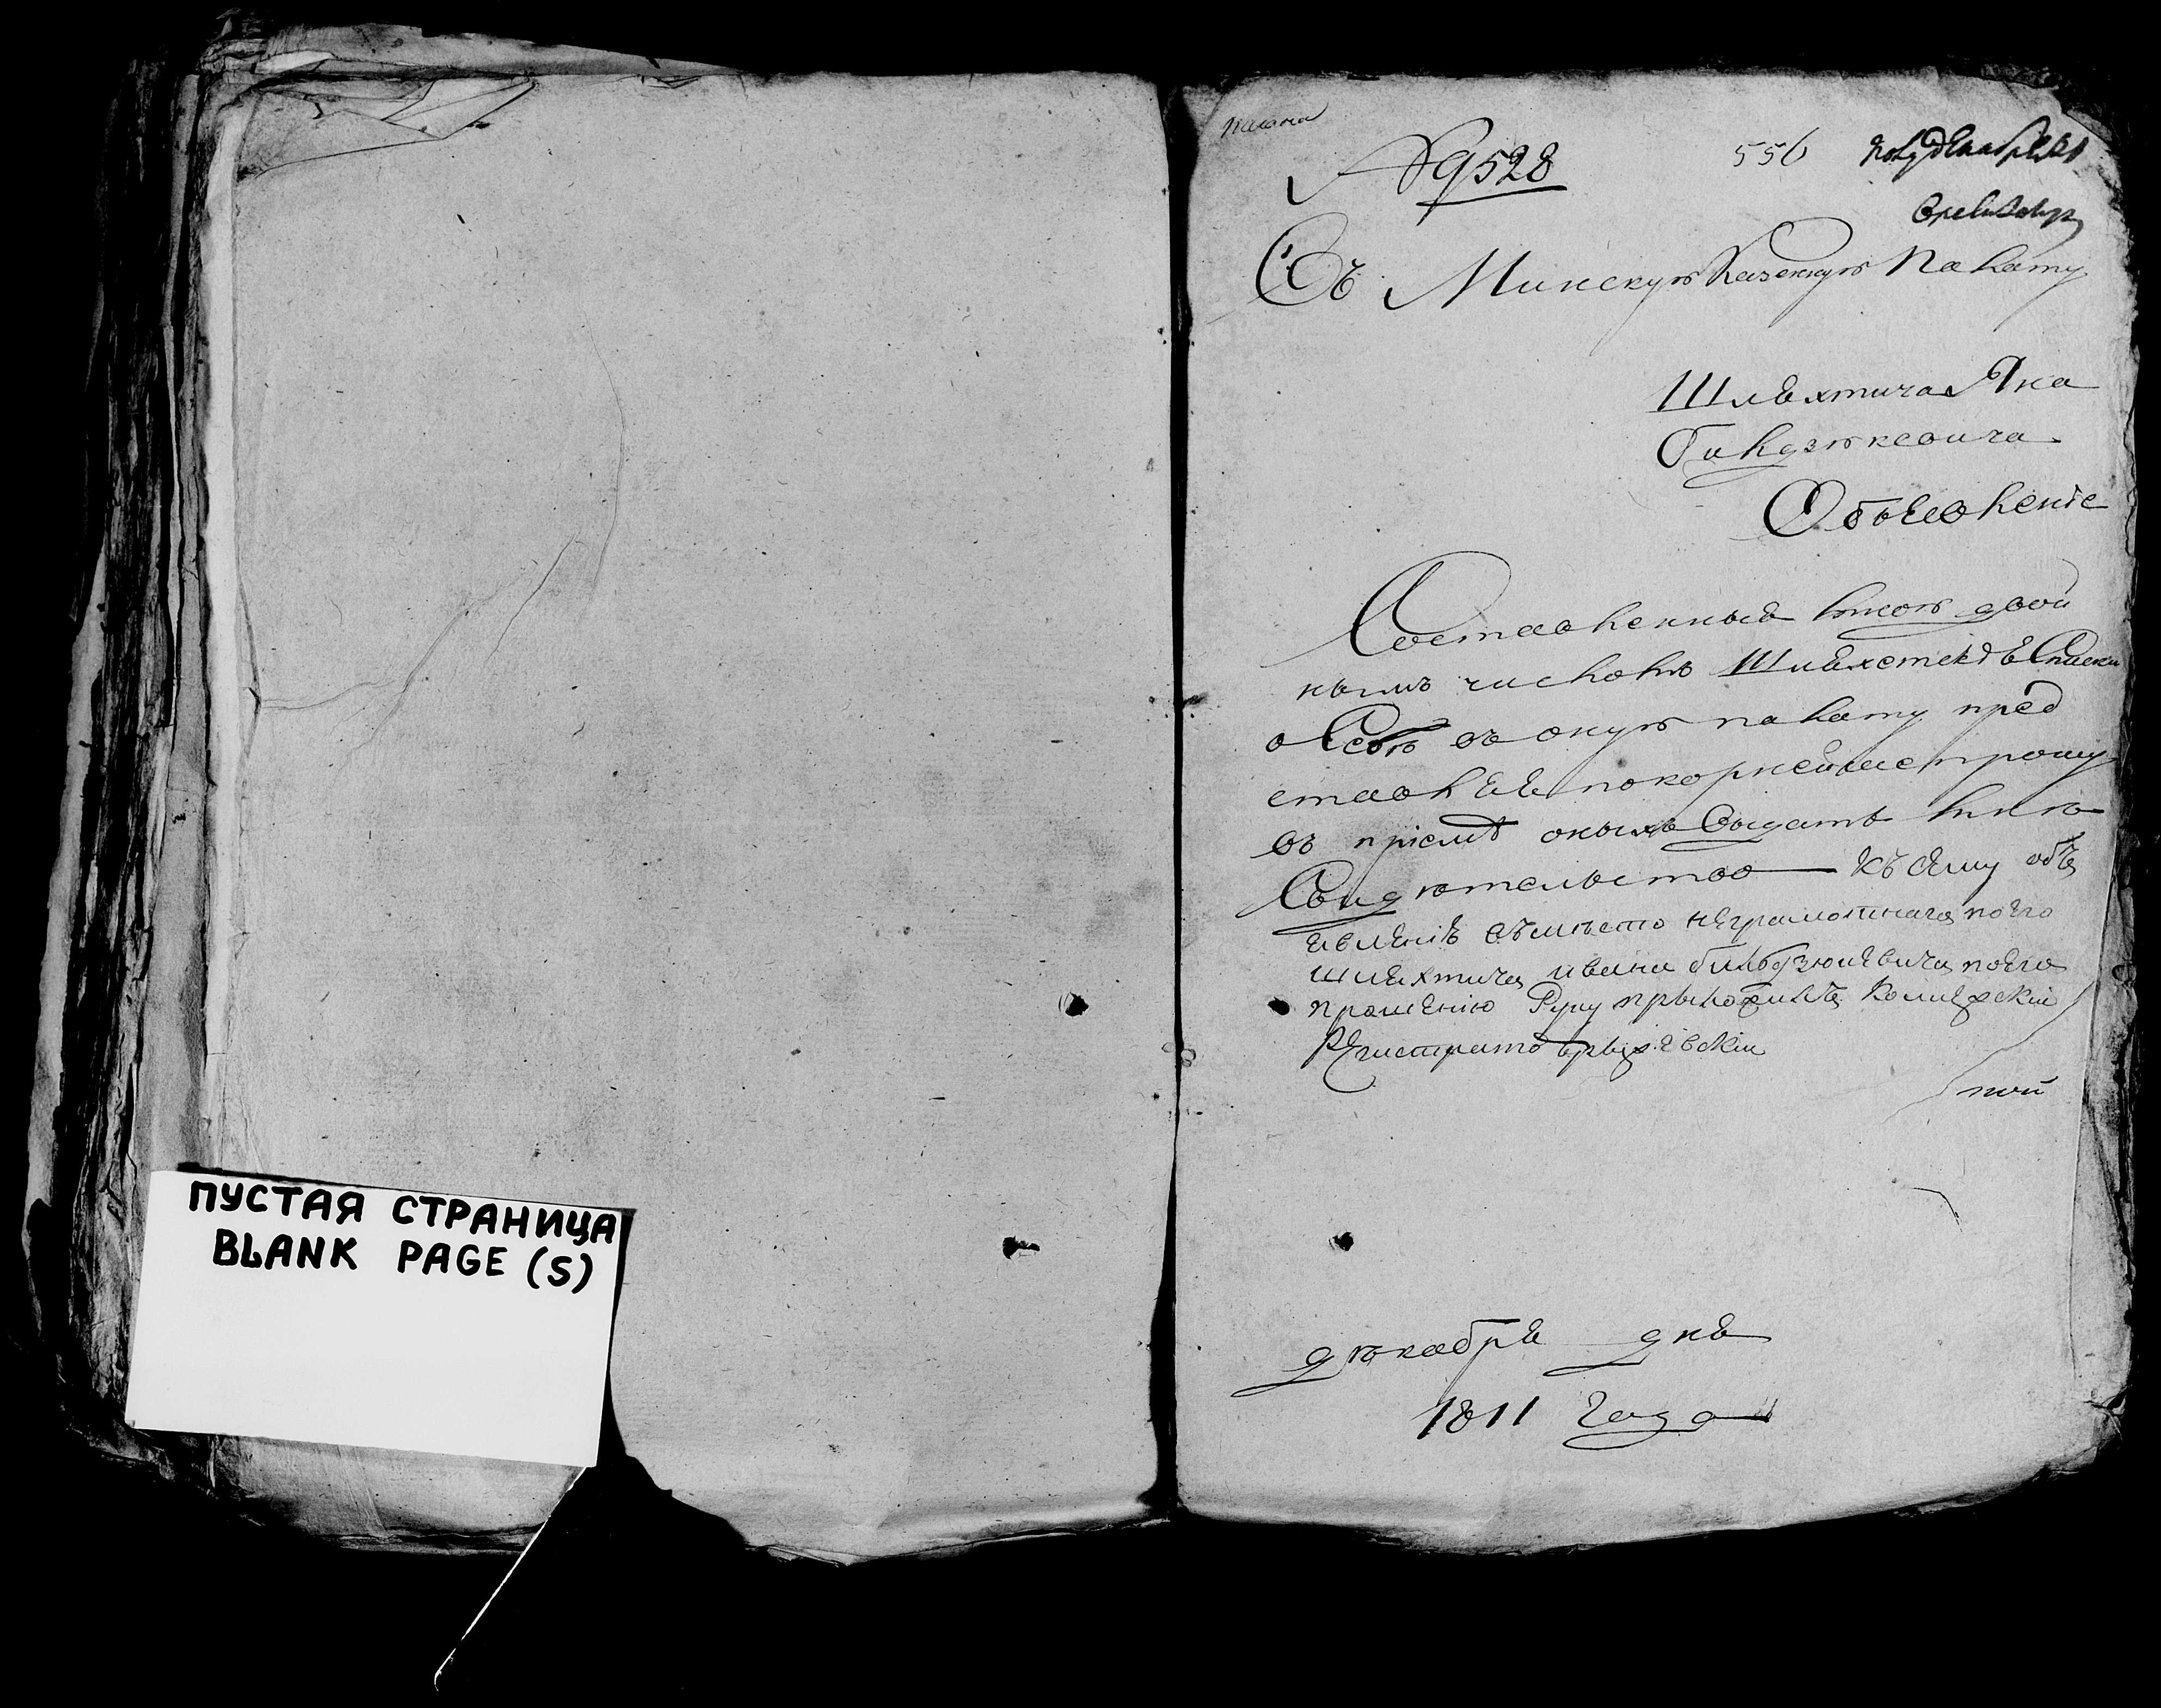 ПУСТАЯ СТРАНИЦА
BLANK PAGE (S)
№ 9528
556
Въ Минскую Казенную Палату
Шляхтича Яна
Объявленіе
Составленныя мною двой
нымъ числомъ Шляхетскія Сказки
о Себѣ въ оную палату пред
ставляя покорнейше прошу
въ пріемѣ оныхъ Выдать мнѣ
Свидѣтельство къ сему объ
явленію вѣместо неграмотнаго
шляхтича ивана по его
прошенію Руку
Регистраторъ
дѣкабря дня
1811 года